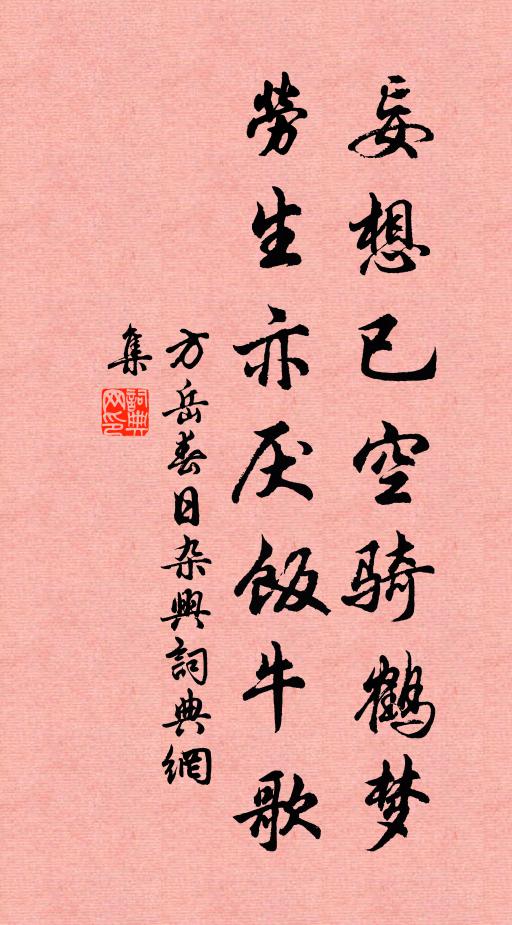 妄想已空骑鹤梦
劳生亦厌饭牛歌
方岳春日杂興詞典網
集
詞典網印